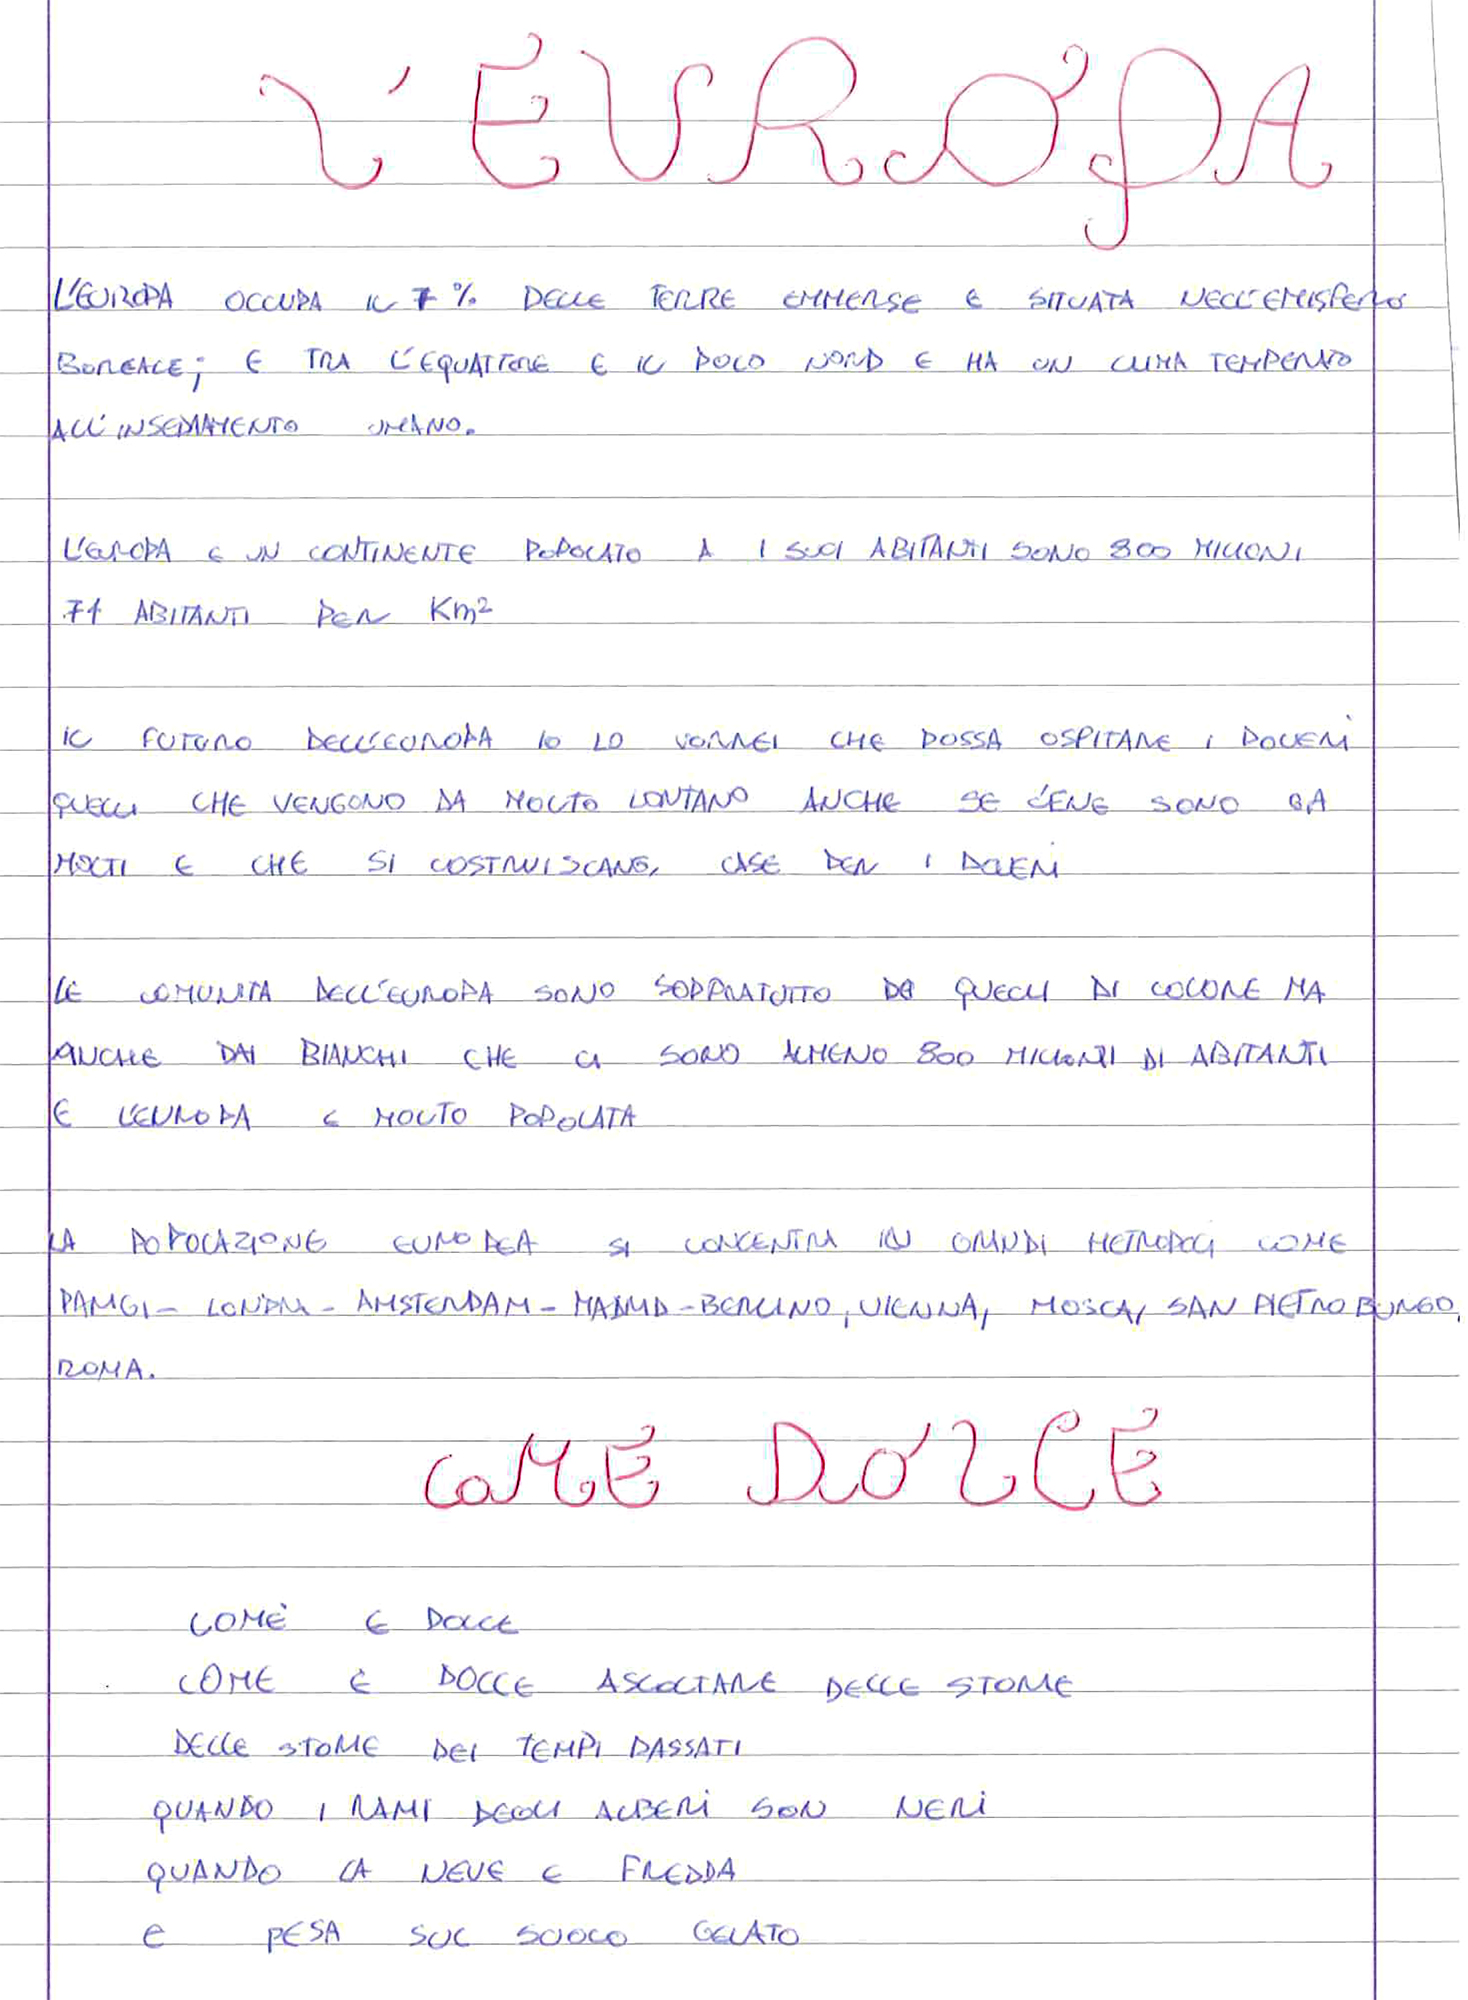 L'EUROPA
L'EUROPA OCCUPA IL 7% DELLE TERRE EMMERSE E SITUATA NELL'EMISFERO
BOREALE; E TRA L'EQUATTORE E IL POLO NORD E HA UN CLIMA TEMPERATO
ALL'INSEDIAMENTO UMANO.
L'EUROPA E UN CONTINENTE POPOLATO A I SUOI ABITANTI SONO 800 MILIONI
71 ABITANTI PER Km²
IL FUTURO DELL'EUROPA IO LO VORREI CHE POSSA OSPITARE I POVERI
QUELLI CHE VENGONO DA MOLTO LONTANO ANCHE SE C'ENE SONO GA
MOLTI E CHE SI COSTRUISCANO, CASE PER I POVERI
LE COMUNITA DELL'EUROPA SONO SOPPRATUTTO QUELLI DI COLORE MA
ANCHE DAI BIANCHI CHE CI SONO ALMENO 800 MILIONI DI ABITANTI
E L'EUROPA E MOLTO POPOLATA
LA POPOLAZIONE EUROPEA SI CONCENTRA IN GRANDI METROPOLI COME
PARIGI - LONDRA - AMSTERDAM - MADRID - BERLINO, VIENNA, MOSCA, SAN PIETRO BURGO,
ROMA.
COME DOLCE
COMÈ E DOLCE
COME È DOLCE ASCOLTARE DELLE STORIE
DELLE STORIE DEI TEMPI PASSATI
QUANDO I RAMI DEGLI ALBERI SON NERI
QUANDO LA NEVE E FREDDA
E PESA SUL SUOLO GELATO